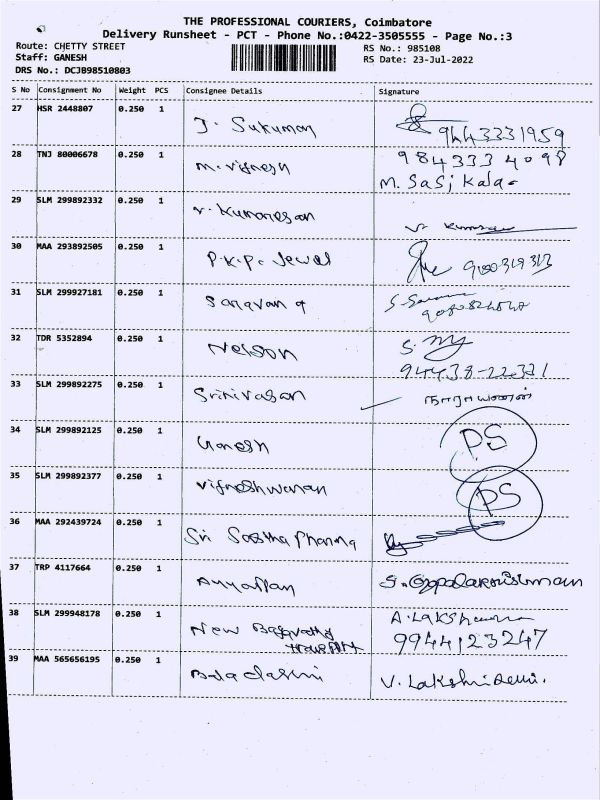 THE PROFESSIONAL COURIERS, Coimbatore
Delivery Runsheet - PCT - Phone No.:0422-3505555 - Page No.:3
Route: CHETTY STREET RS No.: 985108
Staff: GANESH RS Date: 23-Jul-2022
DRS No.: DCJB98510803
S No Consignment No Weight PCS Consignee Details Signature
27 HSR 2448807 0.250 1
J. Sukumar 9443331959
28 TNJ 80006678 0.250 1 984333 4098
M. Vignesh M. Sasi Kala
29 SLM 299892332 0.250 1
V. Kumaresan
30 MAA 293892505 0.250 1
P.K.P. Jewel
31 SLM 299927181 0.250 1
Saravan
32 TDR 5352894 0.250 1
Nelson
94438-22321
33 SLM 299892275 0.250 1
Srinivasan நாராயணன்
34 SLM 299892125 0.250 1
Ganesh PS
35 SLM 299892377 0.250 1
Vigneshwaran PS
36 MAA 292439724 0.250 1
Sri Sastha Pharma
37 TRP 4117664 0.250 1
Ayyappan S. Gopalakrishnan
38 SLM 299948178 0.250 1 A. Lakshmana
New 9944123247
39 MAA 565656195 0.250 1
V. Lakshmi